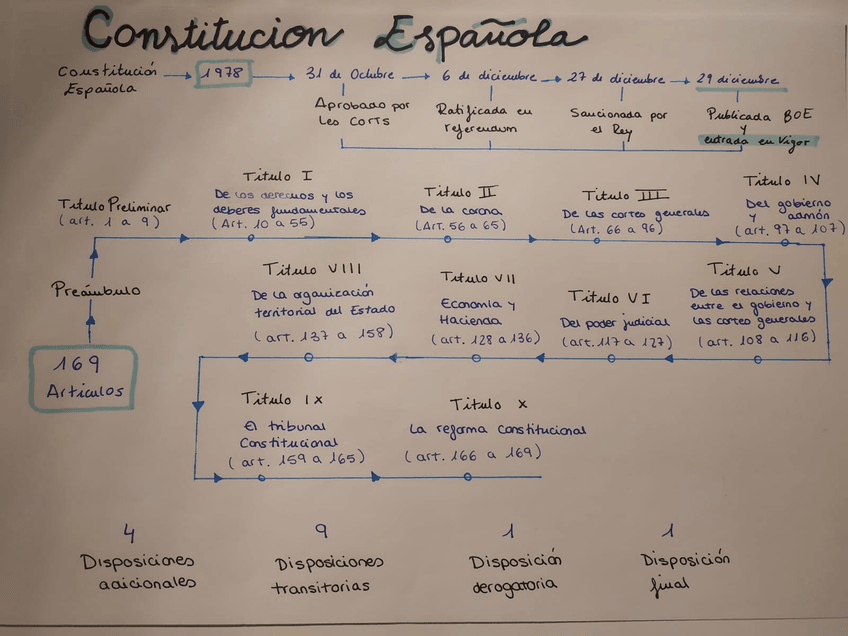 Constitucion Española
Constitución
Española
1978
31 de Octubre
6 de diciembre
27 de diciembre
29 diciembre
Aprobado por
Les Corts
Ratificada en
referendum
Sancionada por
el Rey
Publicada BOE
y
entrada en Vigor
Titulo Preliminar
(art. 1 a 9)
Titulo I
De los derechos y los
deberes fundamentales
(Art. 10 a 55)
Titulo II
De la corona
(Art. 56 a 65)
Titulo III
De las cortes generales
(Art. 66 a 96)
Titulo IV
Del gobierno
y admón
(art. 97 a 107)
Preámbulo
169
Articulos
Titulo VIII
De la organización
territorial del Estado
(art. 137 a 158)
Titulo VII
Economía y
Hacienda
(art. 128 a 136)
Titulo VI
Del poder judicial
(art. 117 a 127)
Titulo V
De las relaciones
entre el gobierno y
las cortes generales
(art. 108 a 116)
Titulo IX
El tribunal
Constitucional
(art. 159 a 165)
Titulo X
La reforma constitucional
(art. 166 a 169)
4
Disposiciones
adicionales
9
Disposiciones
transitorias
1
Disposición
derogatoria
1
Disposición
final